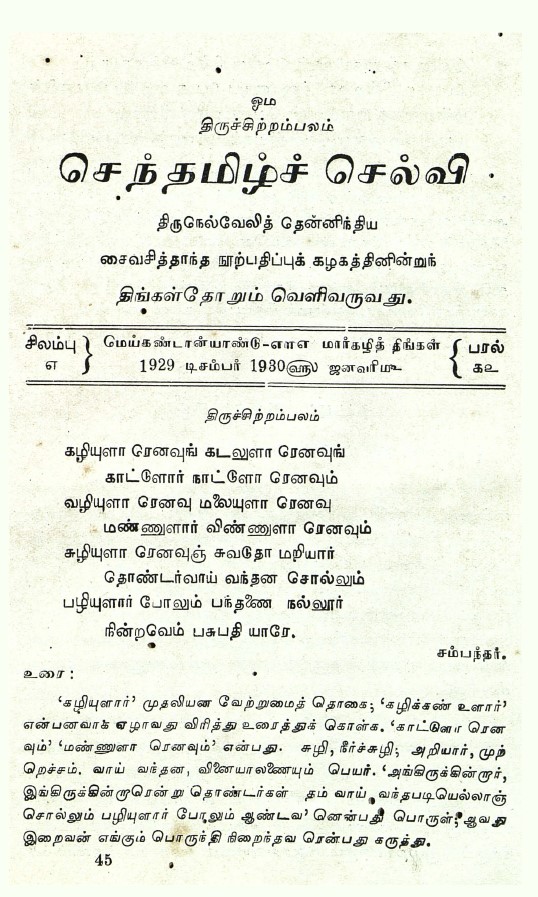 ஓம
திருச்சிற்றம்பலம்
செந்தமிழ்ச் செல்வி
திருநெல்வேலித் தென்னிந்திய
சைவசித்தாந்த நூற்பதிப்புக் கழகத்தினின்றுந்
திங்கள்தோறும் வெளிவருவது.
சிலம்பு எ } மெய்கண்டான்யாண்டு-எளஎ மார்கழித் திங்கள் { பரல்
1929 டிசம்பர் 1930௵ ஜனவரி௴ கஉ
திருச்சிற்றம்பலம்
கழியுளா ரெனவுங் கடலுளா ரெனவுங்
காட்ளோர் நாட்ளோ ரெனவும்
வழியுளா ரெனவு மலையுளா ரெனவு
மண்ணுளார் விண்ணுளா ரெனவும்
சுழியுளா ரெனவுஞ் சுவடுதா மறியார்
தொண்டர்வாய் வந்தன சொல்லும்
பழியுளார் போலும் பந்தணை நல்லூர்
நின்றவெம் பசுபதி யாரே.
சம்பந்தர்.
உரை :
‘கழியுளார்’ முதலியன வேற்றுமைத் தொகை; ‘கழிக்கண் உளார்’
என்பனவாக ஏழாவது விரித்து உரைத்துக் கொள்க. ‘காட்டுளா ரென
வும்’ ‘மண்ணுளா ரெனவும்’ என்பது. சுழி, நீர்ச்சுழி; அறியார், முற்
றெச்சம். வாய் வந்தன, வினையாலணையும் பெயர். ‘அங்கிருக்கின்றார்,
இங்கிருக்கின்றாரென்று தொண்டர்கள் தம் வாய் வந்தபடியெல்லாஞ்
சொல்லும் பழியுளார் போலும் ஆண்டவ’ னென்பது பொருள்; ஆவது
இறைவன் எங்கும் பொருந்தி நிறைந்தவ ரென்பது கருத்து.
45